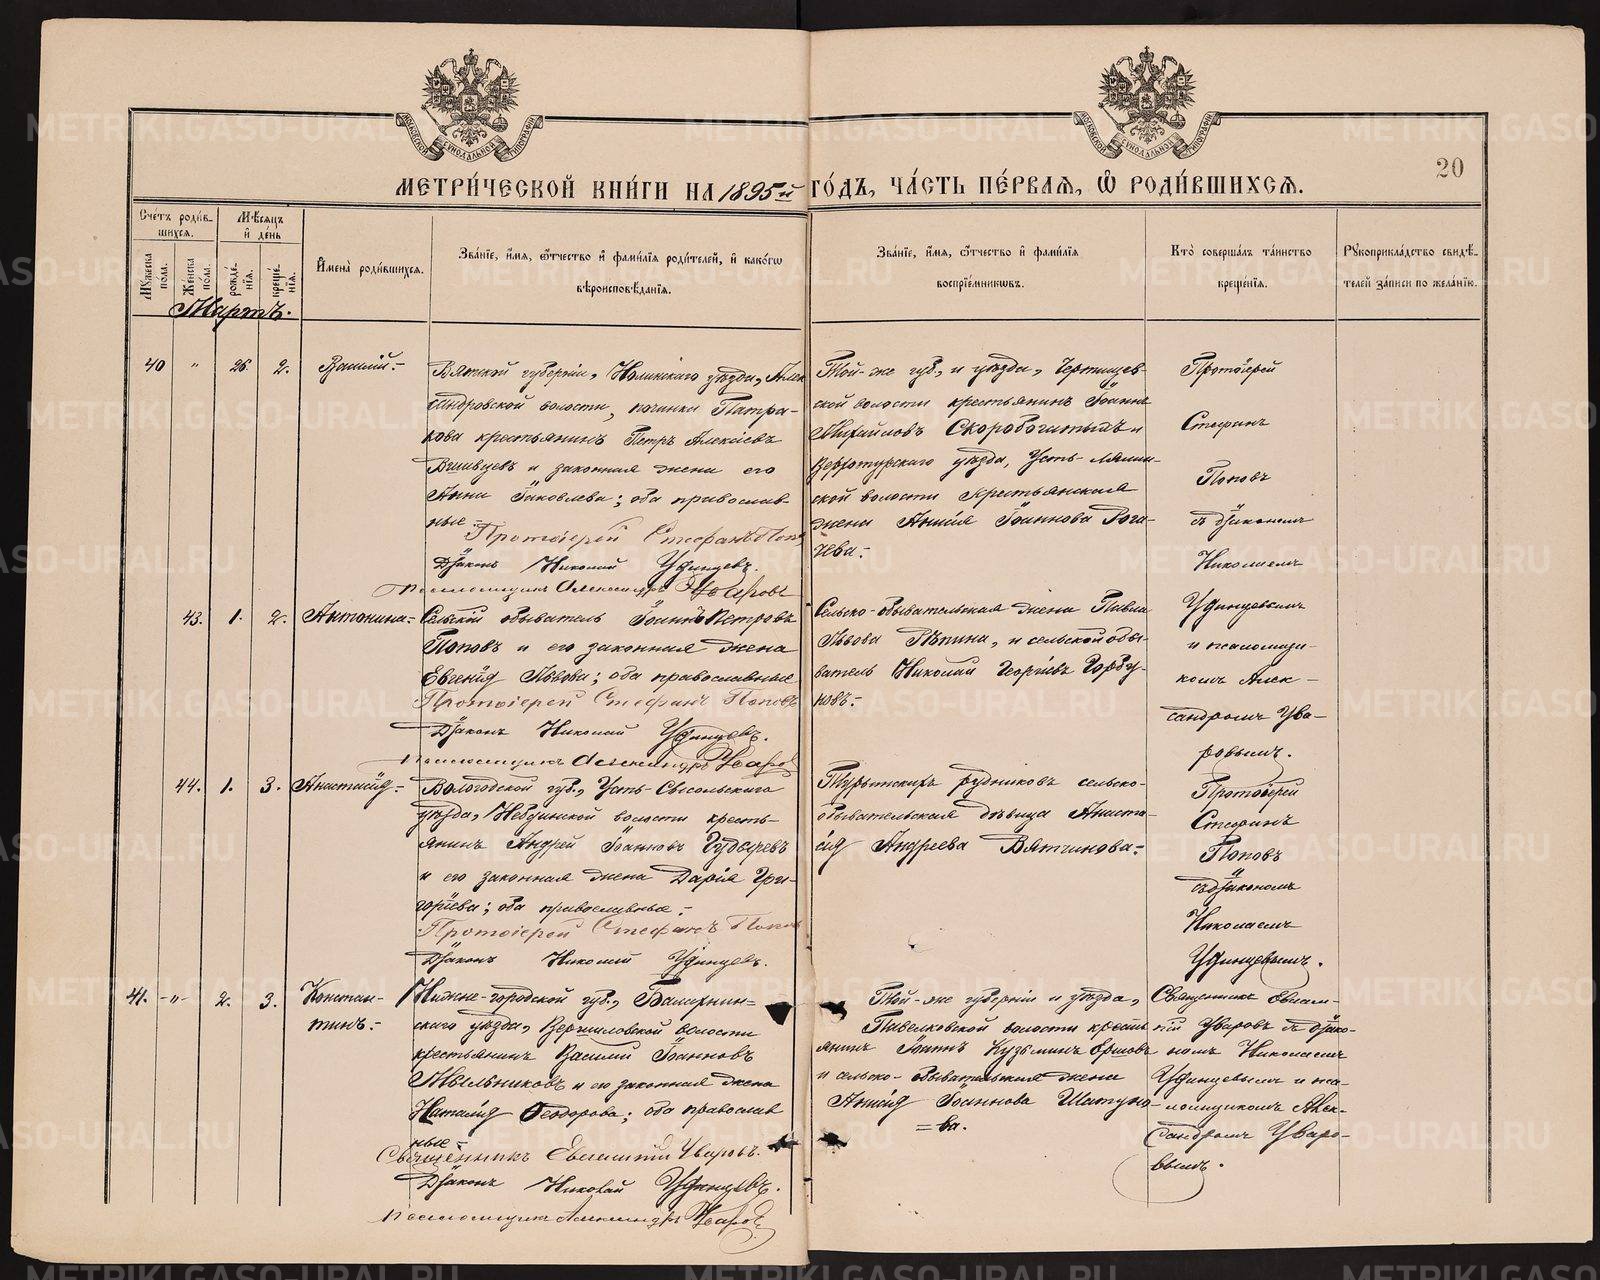 МЕТРИ́ЧЕСКОЙ КНИ́ГИ НА 1895й ГО́ДЪ, ЧА́СТЬ ПЕ́РВАЯ, Ѿ РОДИ́ВШИХСЯ.
20
МОСКОВСКОЙ СУНОДАЛЬНОЙ ТИПОГРАФІИ
МОСКОВСКОЙ СУНОДАЛЬНОЙ ТИПОГРАФІИ
Сче́тъ роди́вшихся.
Мꙋжеска пола.
Женска по́ла.
Мѣ́сяцъ и҆ де́нь
рожде́нія.
креще́нія.
И҆мена̀ роди́вшихся.
Зва́ніе, и҆́мя, ѻ҆́тчество и҆ фами́лія роди́телей, и҆ како́гѡ
вѣроисповѣ́данія.
Зва́ніе, и҆́мя, ѻ҆́тчество и҆ фами́лія
воспріе́мникѡвъ.
Кто̀ соверша́лъ та́инство
креще́нія.
Рꙋкоприкла́дство свидѣ́-
телей за́писи по жела́нію.
Мартъ.
40 " 26. 2. Василій.-
Вятской губерніи, Нолинскаго уѣзда, Алек
сандровской волости, починка Патра-
кова крестьянинъ Петръ Алексіевъ
и законная жена его
Анна Іаковлева; оба православ-
ные.-
Протоіерей Стефанъ Попов
Діаконъ Николай Удинцевъ.
Псаломщикъ Александръ Уваровъ
Той-же губ., и уѣзда,
ской волости крестьянинъ Іоаннъ
Михайловъ Скоробогатыхъ и
Верхотурскаго уѣзда, Усть-
ской волости крестьянская
жена Іоаннова Рога-
чева.-
Протоіерей
Стефанъ
Поповъ
съ діакономъ
Николаемъ
Удинцевымъ
и псаломщи-
комъ Алек-
сандромъ Ува-
ровымъ.
43. 1. 2. Антонина.-
Сельскій обыватель Іоаннъ Петровъ
Поповъ и его законная жена
Евгенія Львова; оба православные
Протоіерей Стефанъ Поповъ
Діаконъ Николай Удинцевъ.
Псаломщикъ Александръ Уваров
Сельско-обывательская жена Павла
Львова Рѣпина, и сельской обы-
ватель Николай Георгіевъ Горбу-
новъ.-
44. 1. 3. Анастасія.-
Вологодской губ., Усть-Сысольскаго
уѣзда, Небдинской волости кресть-
янинъ Андрей Іоанновъ Гудыревъ
и его законная жена Дарія Гри-
горіева; оба православные.-
Протоіерей Стефанъ Попов
Діаконъ Николай Удинцевъ.
Турьинскихъ рудниковъ сельско-
обывательская дѣвица Анаста-
сія Андреева Вятчинова.-
Протоіерей
Стефанъ
Поповъ
съ діакономъ
Николаемъ
Удинцевымъ.
41. -"- 2. 3. Констан-
тинъ.-
Ниже-городской губ., Балахнин-
скаго уѣзда, Вершиловской волости
крестьянинъ Василій Іоанновъ
Мыльниковъ и его законная жена
Наталія Феодорова; оба православ
ные.-
Священникъ Евлампій Уваровъ.
Діаконъ Николай Удинцевъ.
Псаломщикъ Александръ Уваров
Той-же губерніи и уѣзда,
Павелковской волости кресть
янинъ Іоаннъ Кузьминъ Ершовъ
и сельско-обывательская жена
Іоаннова Шатуно-
=ва.
Священникъ Евлам-
пій Уваровъ съ діако-
номъ Николаемъ
Удинцевымъ и пса-
ломщикомъ Алек-
сандромъ Уваро-
вымъ.
METRIKI.GASO-URAL.RU